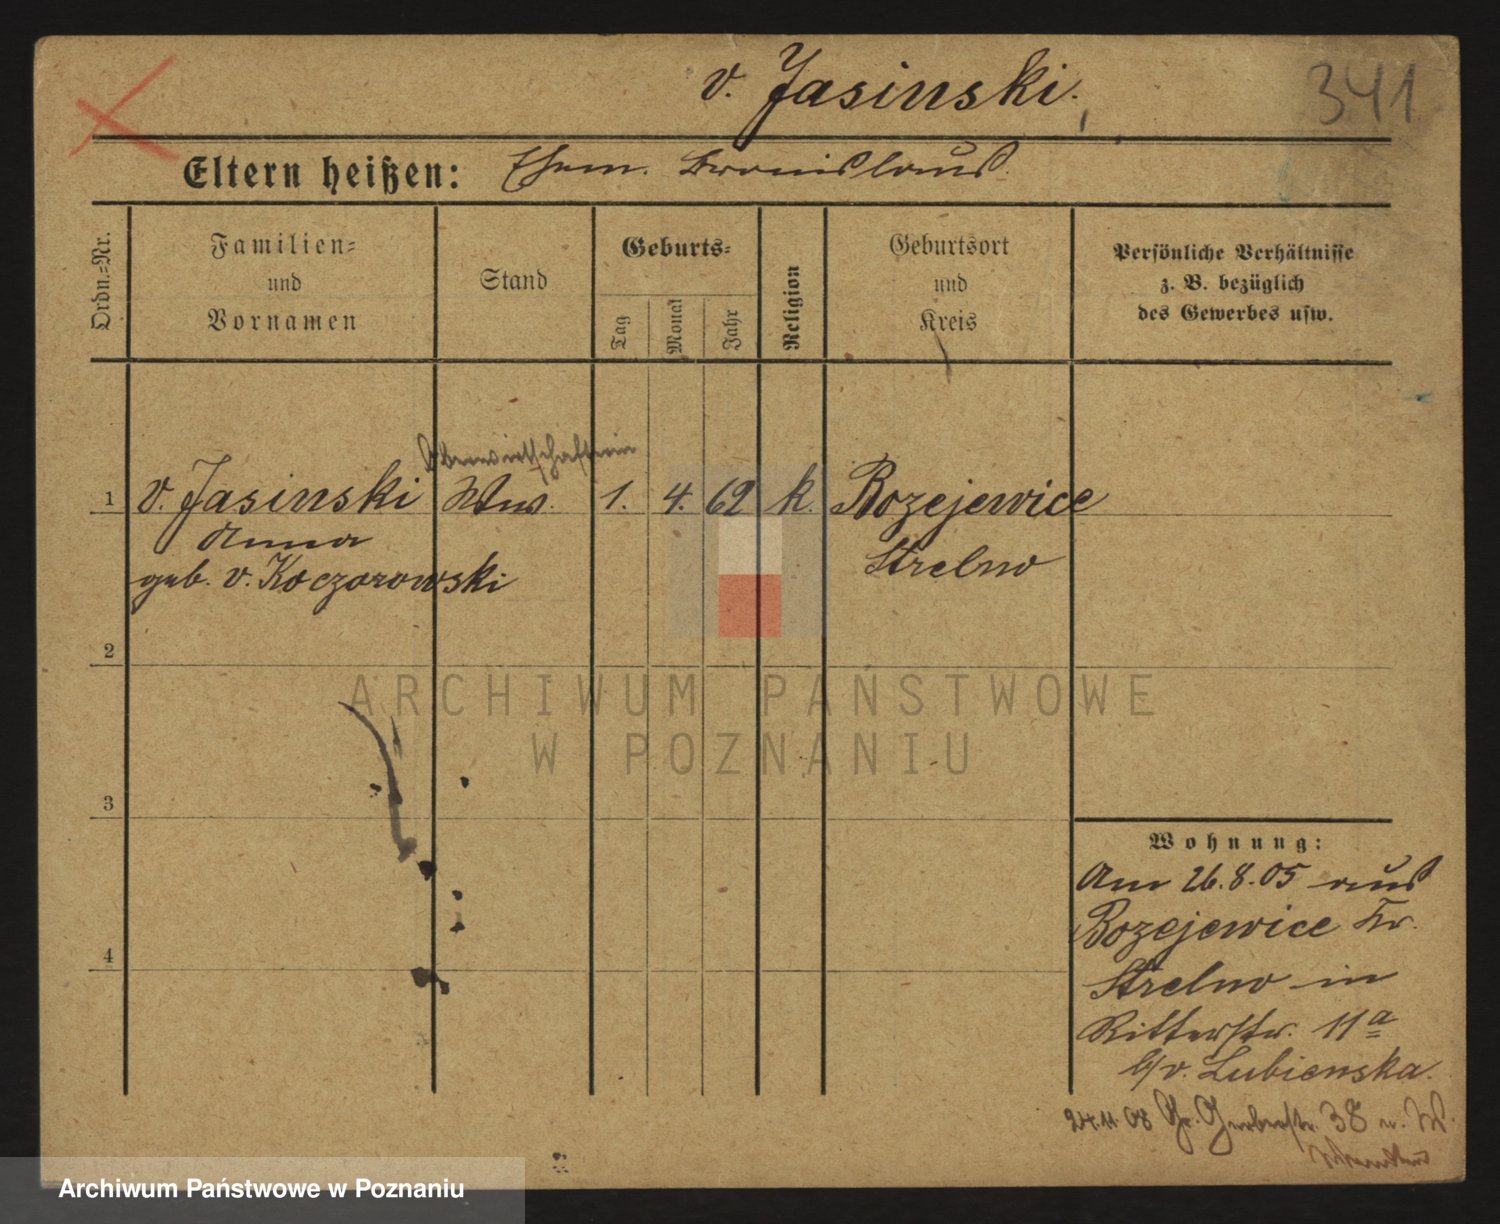 v. Jasinski.
341
Eltern heißen: Ehem. Bronislaus.
Ordn.=Nr.
Familien=
und
Vornamen
Stand
Geburts=
Tag
Monat
Jahr
Religion
Geburtsort
und
Kreis
Persönliche Verhältnisse
z. B. bezüglich
des Gewerbes usw.
Oberwirtschafterin
1 v. Jasinski Ww. 1. 4. 62 k. Bozejewice
Anna Strelno
geb. v. Koczorowski
2
ARCHIWUM PAŃSTWOWE
W POZNANIU
3
4
Wohnung:
Am 26.8.05 aus
Bozejewice Kr.
Strelno in
Ritterstr. 11a
b/v. Lubienska.
24.11.08 Gr. Gerberstr. 38
Archiwum Państwowe w Poznaniu